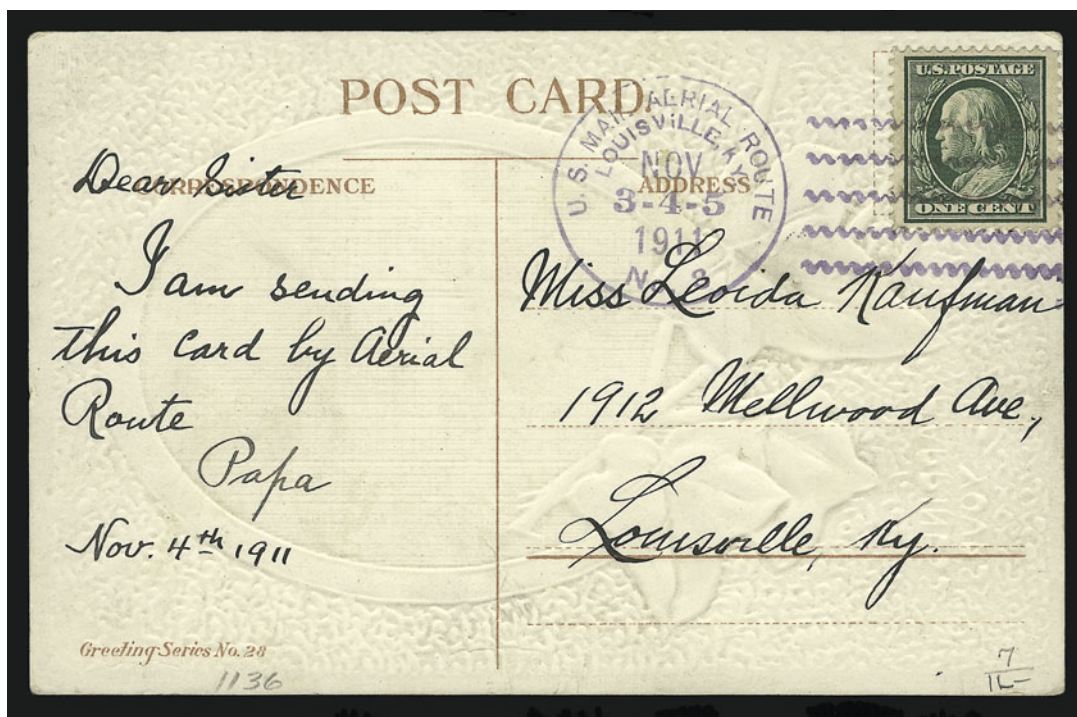 POST CARD
U.S. MAIL AERIAL ROUTE
LOUISVILLE, KY
NOV
3-4-5
1911
N 8
U.S. POSTAGE
ONE CENT
CORRESPONDENCE
Dear Sister
I am sending
this card by Aerial
Route
Papa
Nov. 4th 1911
ADDRESS
Miss Leoida Kaufman
1912 Mellwood Ave.,
Louisville, Ky.
Greeting Series No. 28
1136
7